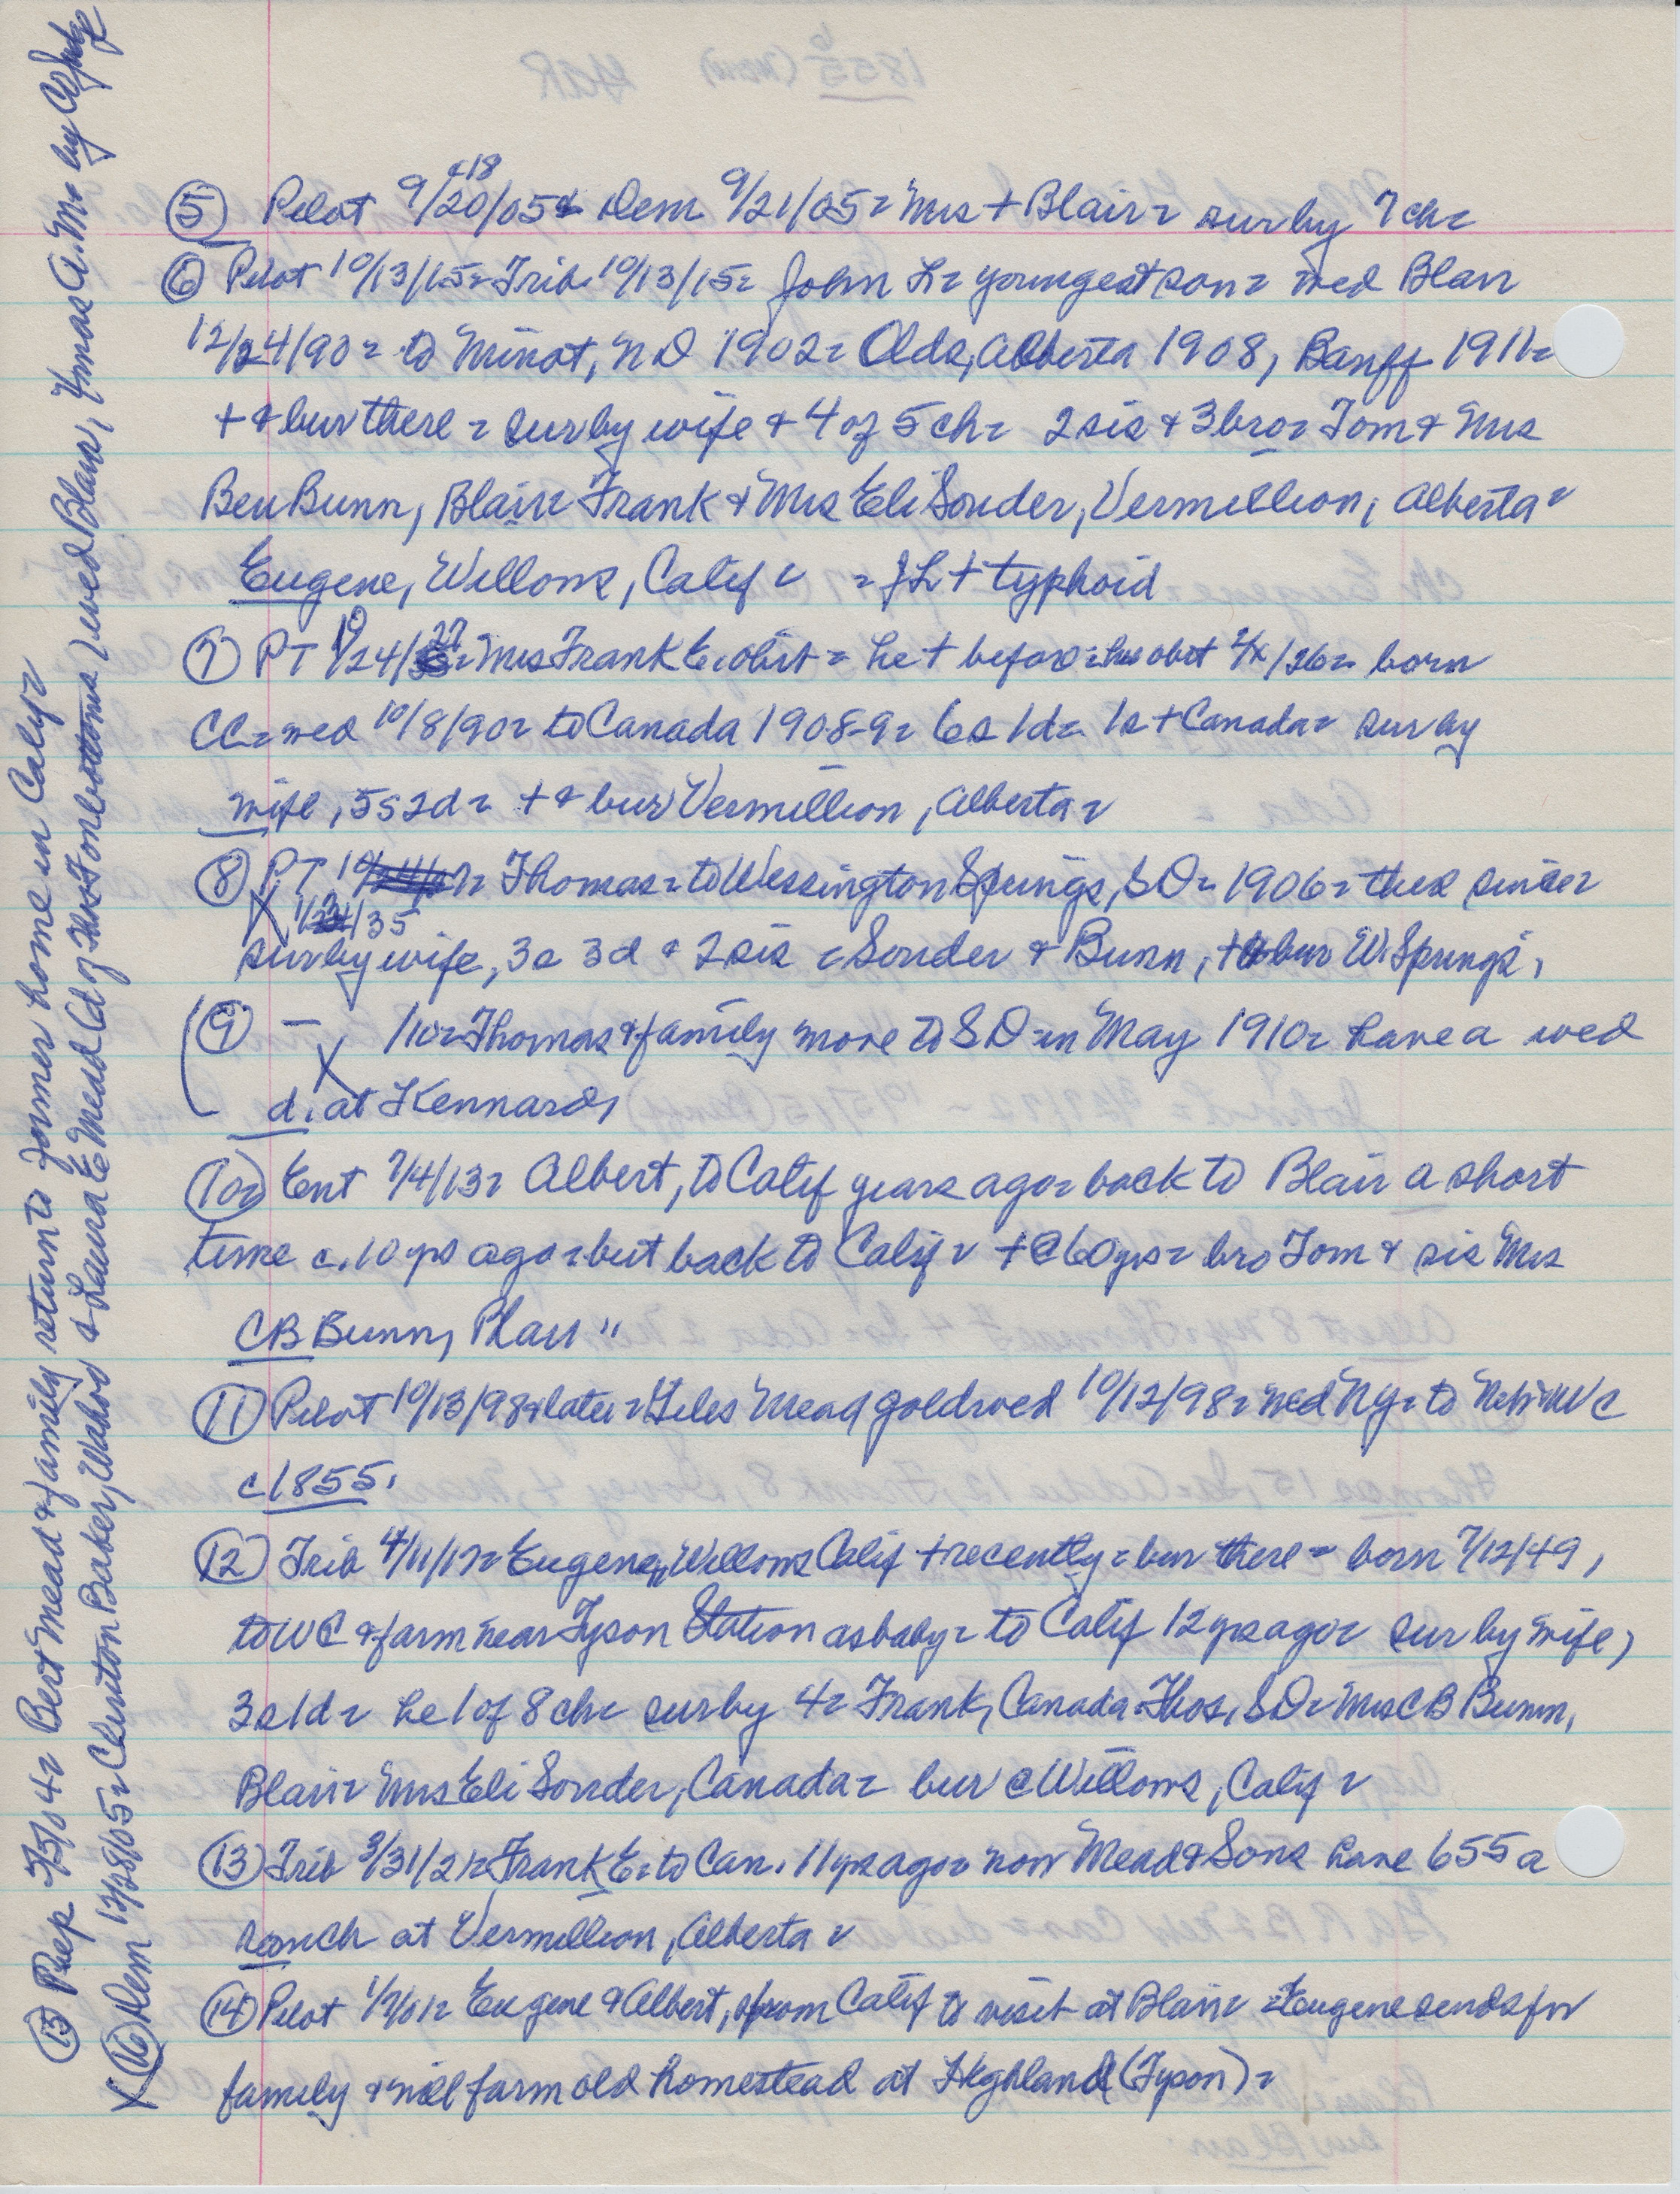 c18
⑤ Pilot 9/20/05 & Dem 9/21/05 = Mrs + Blair = sur by 7 ch =
⑥ Pilot 10/13/15 = Trib 10/13/15 = John L = youngest son = wed Blair
12/24/90 = to Minot, ND 1902 = Olds, Alberta 1908, Banff 1911 =
+ & bur there = sur by wife & 4 of 5 ch = 2 sis & 3 bro = Tom & Mrs
Ben Bunn, Blair = Frank & Mrs Eli Souder, Vermillion, Alberta =
Eugene, Willows, Calif = = JL + typhoid
⑦ PT 10/24/27 = Mrs Frank E. obit = he + before = his obit /26 = born
CC = wed 10/8/90 = to Canada 1908-9 = 6s 1d = 1s + Canada = sur by
wife, 5s 2d = + & bur Vermillion, Alberta =
⑧ PT = Thomas = to Wessington Springs, SD = 1906 = there since =
X 1/ /35
sur by wife, 3s 3d & 2 sis = Souder & Bunn, + & bur W. Springs,
⑨ — X /10 = Thomas & family move to SD in May 1910 = have a wed
d. at Kennard,
⑩ Ent 7/4/13 = Albert, to Calif years ago = back to Blair a short
time c. 10 yrs ago = but back to Calif = + @ 60 yrs = bro Tom & sis Mrs
CB Bunn, Blair "
⑪ Pilot 10/13/98 & later = Giles Mead gold wed 10/12/98 = wed NY = to Neb = WC
c 1855.
⑫ Trib 4/11/17 = Eugene, Willows Calif + recently = bur there = born 7/12/49,
to WC & farm near Tyson Station as baby = to Calif 12 yrs ago = sur by wife,
3s 1d = he 1 of 8 ch = sur by 4 = Frank, Canada = Thos, SD = Mrs CB Bunn,
Blair = Mrs Eli Souder, Canada = bur @ Willows, Calif =
⑬ Trib 3/31/21 = Frank E = to Can. 11 yrs ago = now Mead & Sons have 655 a
ranch at Vermillion, Alberta =
⑭ Pilot 1/ /01 = Eugene & Albert, from Calif to visit at Blair = Eugene sends for
family & will farm old homestead at Highland (Tyson) =
⑮ Rep /5/04 = Bert Mead & family return to former home in Calif =
X ⑯ Dem 12/28/05 = Clinton Baker, Wahoo & Laura E Mead (d of Thos Tonbottoms) wed Blair, Thos A. Mo by Co Judge